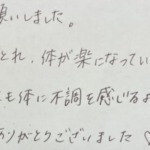 願いしました。
とれ、体が楽になってい
も体に不調を感じるよ
ありがとうございました♡